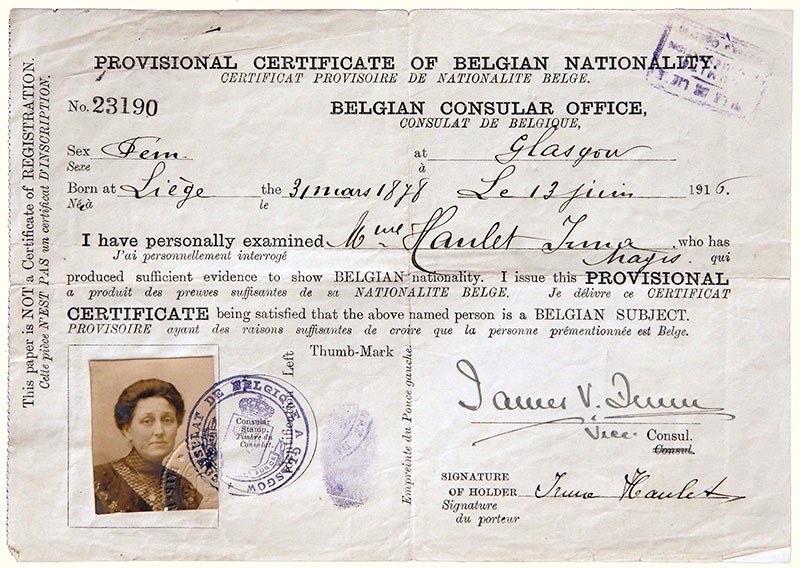 PROVISIONAL CERTIFICATE OF BELGIAN NATIONALITY.
CERTIFICAT PROVISOIRE DE NATIONALITE BELGE.
No. 23190 BELGIAN CONSULAR OFFICE,
CONSULAT DE BELGIQUE,
Sex Fém. at Glasgow
Sexe à
Born at Liège the 31 mars 1878 Le 13 juin 1916.
Né à le
I have personally examined Mme Haulet Irma who has
J'ai personnellement interrogé Magis. qui
produced sufficient evidence to show BELGIAN nationality. I issue this PROVISIONAL
a produit des preuves suffisantes de sa NATIONALITE BELGE. Je délivre ce CERTIFICAT
CERTIFICATE being satisfied that the above named person is a BELGIAN SUBJECT.
PROVISOIRE ayant des raisons suffisantes de croire que la personne prémentionnée est Belge.
This paper is NOT a Certificate of REGISTRATION.
Cette pièce N'EST PAS un certificat D'INSCRIPTION.
CONSULAT DE BELGIQUE A GLASGOW
Consular
Stamp.
Timbre du
Consulat.
Left
Thumb-Mark
Empreinte du Pouce gauche.
James V.
Vice Consul.
Consul.
SIGNATURE
OF HOLDER Irma Haulet
Signature
du porteur